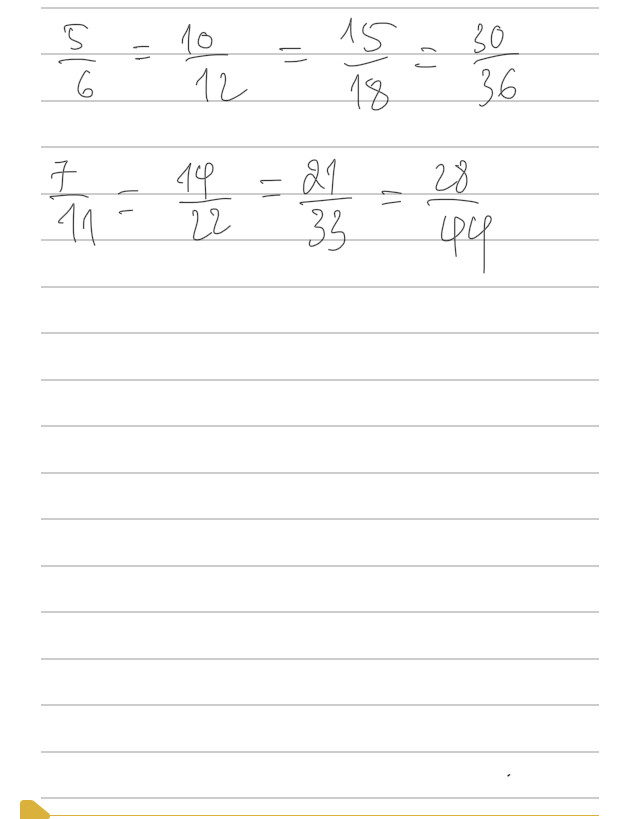 5/6 = 10/12 = 15/18 = 30/36
7/11 = 14/22 = 21/33 = 28/44